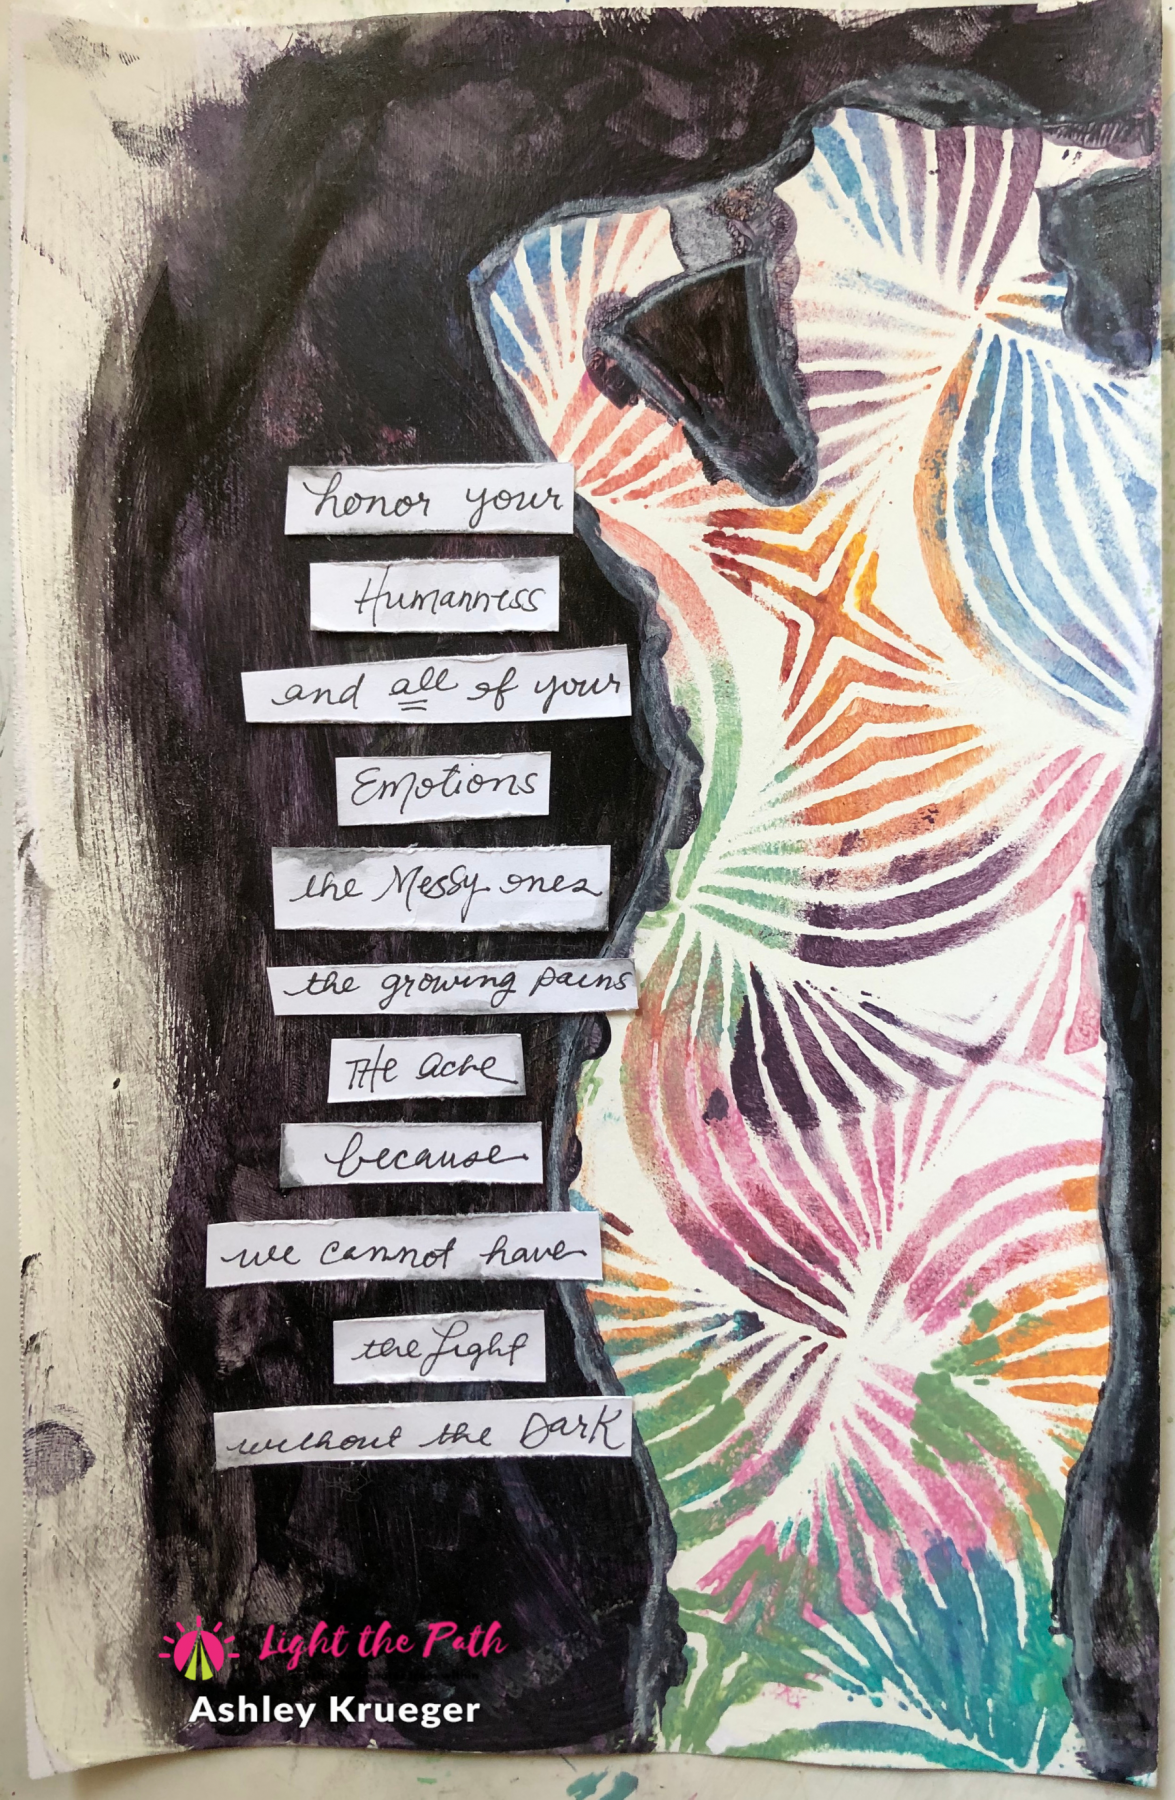 honor your
Humanness
and all of your
Emotions
the Messy ones
the growing pains
THe ache
because
we cannot have
the Light
without the DarK
Light the Path
Ashley Krueger